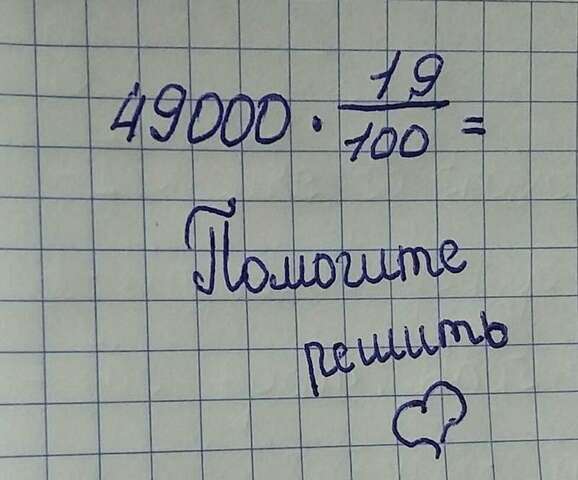 49000 · 19/100 =
Помогите
решить